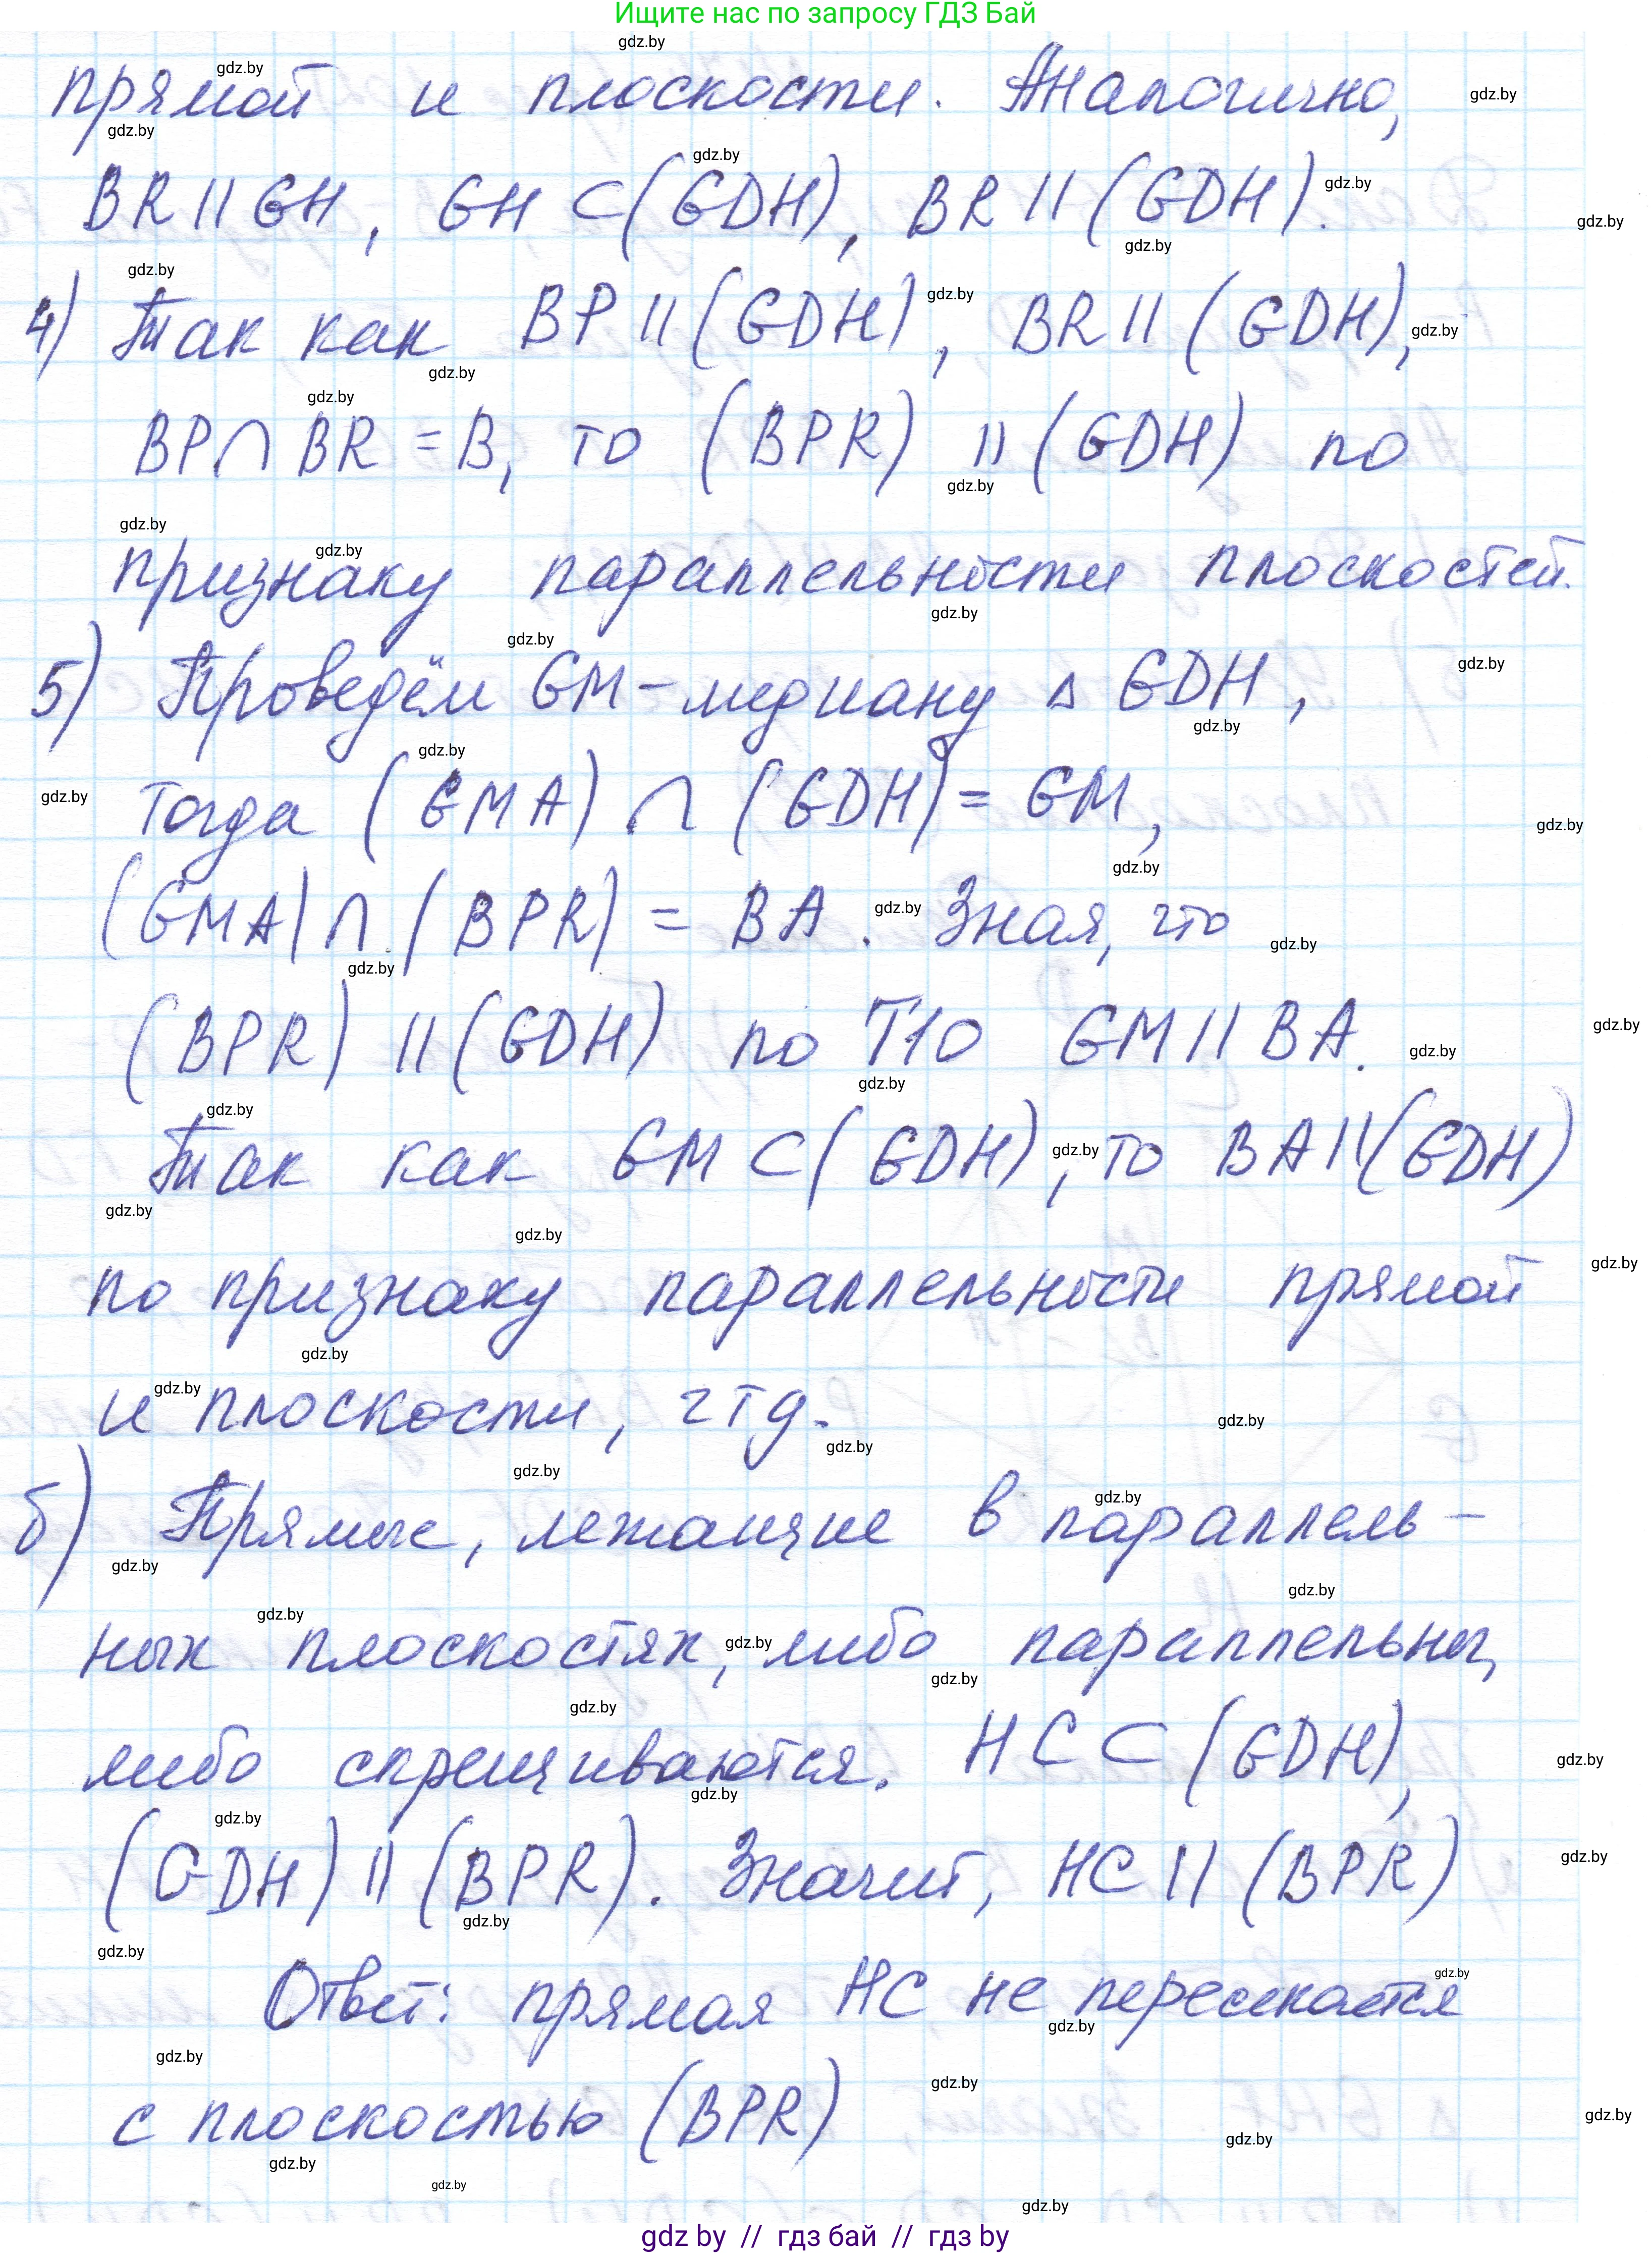 Ищите нас по запросу ГДЗ Бай
прямой и плоскости. Аналогично,
BR || GH, GH ⊂ (GDH), BR || (GDH).
4) Так как BP || (GDH), BR || (GDH),
BP ∩ BR = B, то (BPR) || (GDH) по
признаку параллельности плоскостей.
5) Проведём GM - медиану △ GDH,
тогда (GMA) ∩ (GDH) = GM,
(GMA) ∩ (BPR) = BA. Зная, что
(BPR) || (GDH) по Т10 GM || BA.
Так как GM ⊂ (GDH), то BA || (GDH)
по признаку параллельности прямой
и плоскости, чтд.
б) Прямые, лежащие в параллель-
ных плоскостях, либо параллельны,
либо скрещиваются. HC ⊂ (GDH),
(GDH) || (BPR). Значит, HC || (BPR)
Ответ: прямая HC не пересекается
с плоскостью (BPR)
gdz by // гдз бай // гдз by